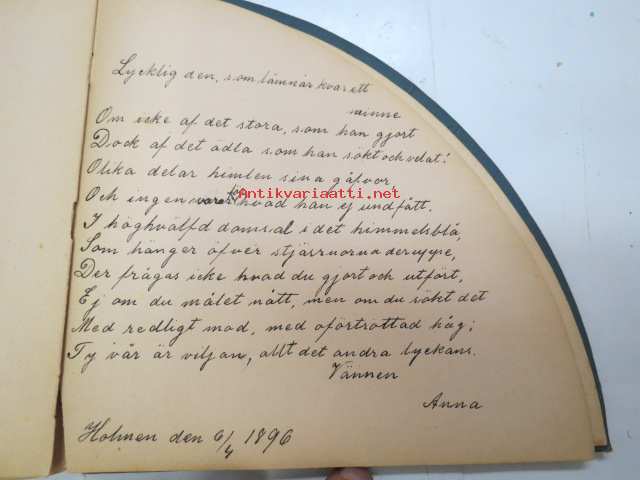 Lycklig den, som lämnar kvar ett
minne
Om icke af det stora, som han gjort
Dock af det ädla som han sökt och velat!
Olika delar himlen sina gåfvor
Och ingen hvad han ej undfått.
Antikvariaatti.net
I höghvälfd domsal i det himmelsblå,
Som hänger öfver stjärnorna deruppe,
Der frågas icke hvad du gjort och utfört,
Ej om du målet nått, men om du sökt det
Med redligt mod, med oförtröttad håg;
Ty vår är viljan, allt det andra lyckans.
Vännen
Anna
Holmen den 6/4 1896